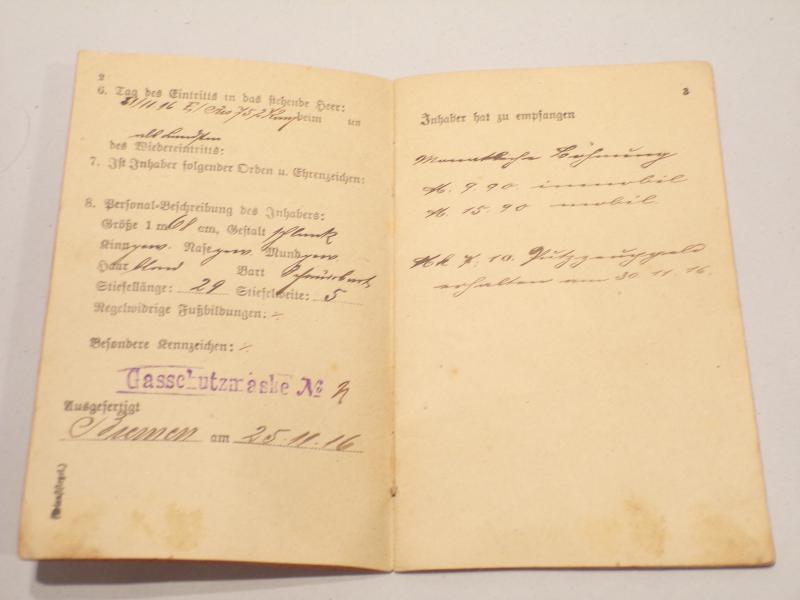 2
6. Tag des Eintritts in das stehende Heer:
21/11 16 beim ten
als Landstm
des Wiedereintritts:
7. Ist Inhaber folgender Orden u. Ehrenzeichen:
8. Personal-Beschreibung des Inhabers:
Größe 1 m 68 cm, Gestalt schlank
Kinn gew. Nase gew. Mund gew.
Haar blond Bart Schnurrbart
Stiefellänge: 29 Stiefelweite: 5
Regelwidrige Fußbildungen: ./.
Besondere Kennzeichen: ./.
Gasschutzmaske No 2
Ausgefertigt
Bremen am 25.11.16
3
Inhaber hat zu empfangen
Monatliche Löhnung
M. 9.90 immobil
M. 15.90 mobil.
10. Putzzeuggeld
erhalten am 30.11.16.